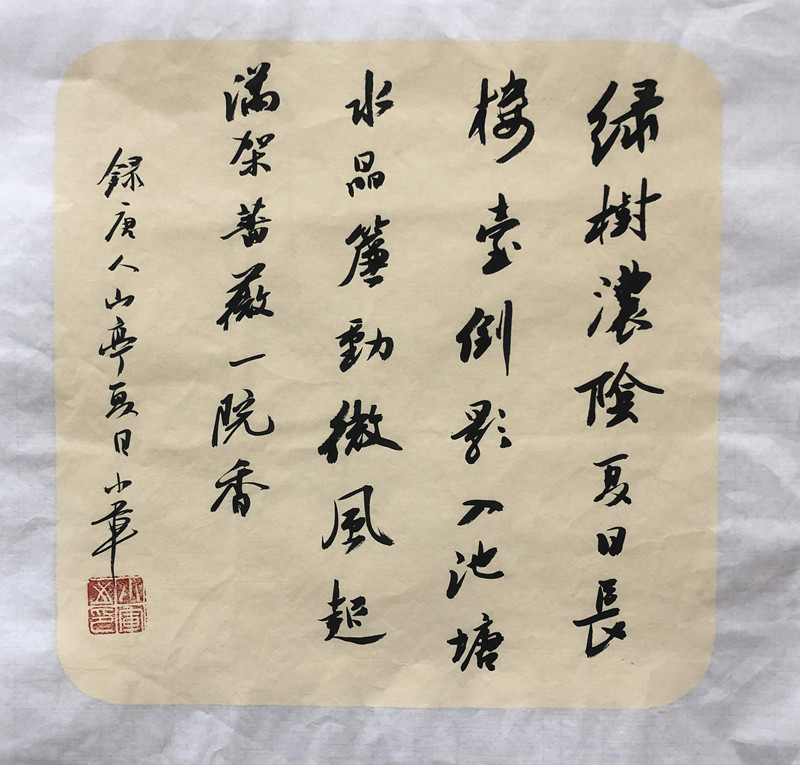 绿樹濃陰夏日長
楼臺倒影入池塘
水晶簾動微風起
满架薔薇一院香
録唐人山亭夏日小軍